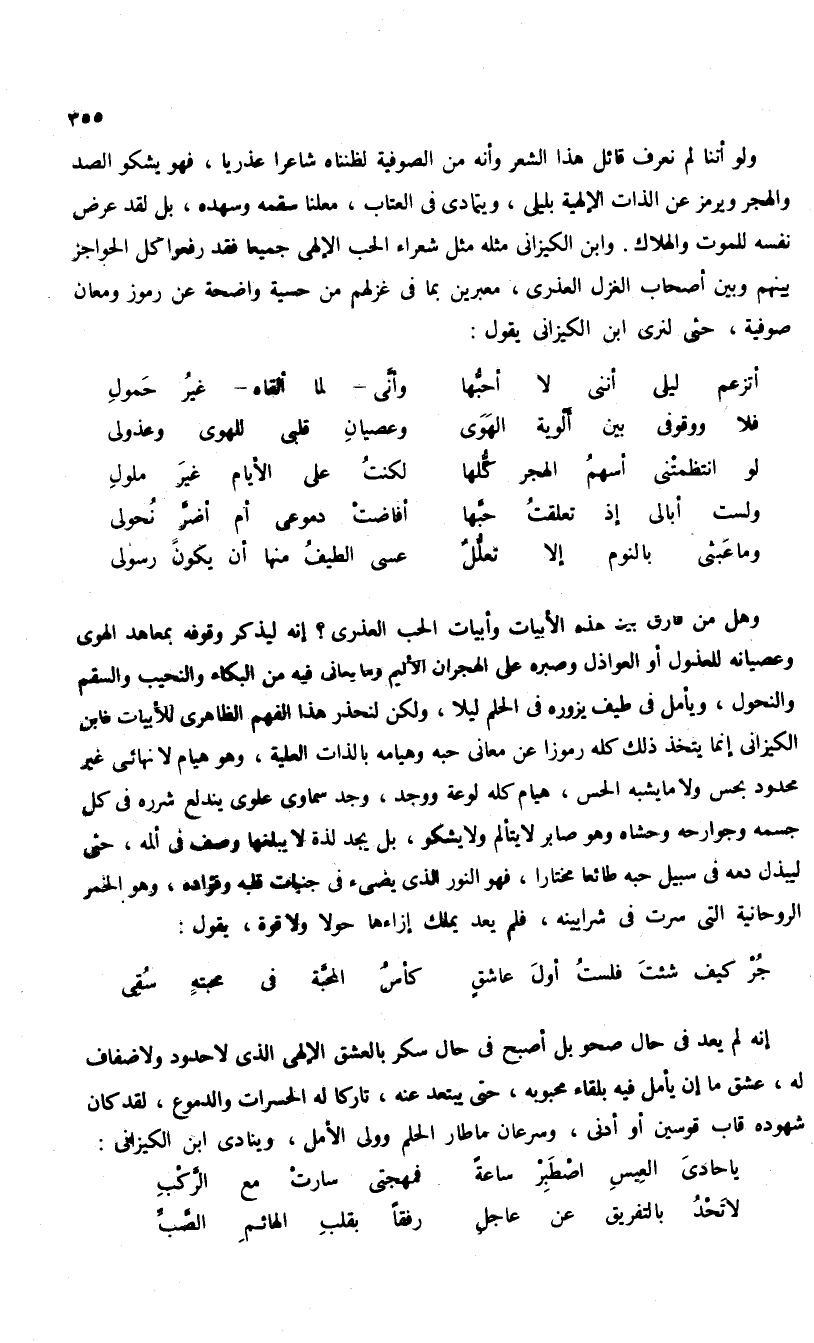 ٣٥٥
ولو أتنا لم نعرف قائل هذا الشعر وأنه من الصوفية لظنناه شاعرا عذريا ، فهو يشكو الصد
والهجر ويرمز عن الذات الإلهية بليلى ، ويتمادى فى العتاب ، معلنا سقمه وسهده ، بل لقد عرض
نفسه للموت والهلاك . وابن الكيزانى مثله مثل شعراء الحب الإلهى جميعا فقد رفعوا كل الحواجز
بينهم وبين أصحاب الغزل العذرى ، معبرين بما فى غزلهم من حسية واضحة عن رموز ومعان
صوفية ، حتى لنرى ابن الكيزانى يقول :
أتزعم ليلى أننى لا أحبُّها وأنَّى – لما ألقاه – غيرُ حَمولِ
فلا ووقوفى بين ألْوية الهَوَى وعصيانِ قلبى للهوى وعذولى
لو انتظمتْنى أسهمُ الهجر كُّلها لكنتُ على الأيام غيرَ ملولِ
ولست أبالى إذ تعلقتُ حبَّها أفاضتْ دموعى أم أضرَّ نُحولى
وما عَبَثى بالنوم إلا تعلُّلٌ عسى الطيفُ منها أن يكونَّ رسولى
وهل من فارق بين هذه الأبيات وأبيات الحب العذرى ؟ إنه ليذكر وقوفه بمعاهد الهوى
وعصيانه للعذول أو العواذل وصبره على الهجران الأليم وما يعانى فيه من البكاء والنحيب والسقم
والنحول ، ويأمل فى طيف يزوره فى الحلم ليلا ، ولكن لنحذر هذا الفهم الظاهرى للأبيات فابن
الكيزانى إنما يتخذ ذلك كله رموزا عن معانى حبه وهيامه بالذات العلية ، وهو هيام لا نهائى غير
محدود بحس ولا مايشبه الحس ، هيام كله لوعة ووجد ، وجد سماوى علوى يندلع شرره فى كل
جسمه وجوارحه وحشاه وهو صابر لايتألم ولايشكو ، بل يجد لذة لا يبلغها وصف فى ألمه ، حتى
ليبذل دمه فى سبيل حبه طائعا مختارا ، فهو النور الذى يضىء فى جنبات قلبه وفؤاده ، وهو الخمر
الروحانية التى سرت فى شرايينه ، فلم يعد يملك إزاءها حولا ولا قوة ، يقول :
جُرْ كيف شئتَ فلستُ أولَ عاشقٍ كأسُ المحبَّة فى محبتهِ سُقِى
إنه لم يعد فى حال صحو بل أصبح فى حال سكر بالعشق الإلهى الذى لا حدود ولا ضفاف
له ، عشق ما إن يأمل فيه بلقاء محبوبه ، حتى يبتعد عنه ، تاركا له الحسرات والدموع ، لقد كان
شهوده قاب قوسين أو أدنى ، وسرعان ماطار الحلم وولى الأمل ، وينادى ابن الكيزانى :
ياحادىَ العِيسِ اصْطَبِرْ ساعةً فمهجتى سارتْ مع الرَّكْبِ
لاتَحْدُ بالتفريق عن عاجلِ رفقاً بقلبِ الهائمِ الصَّبِّ